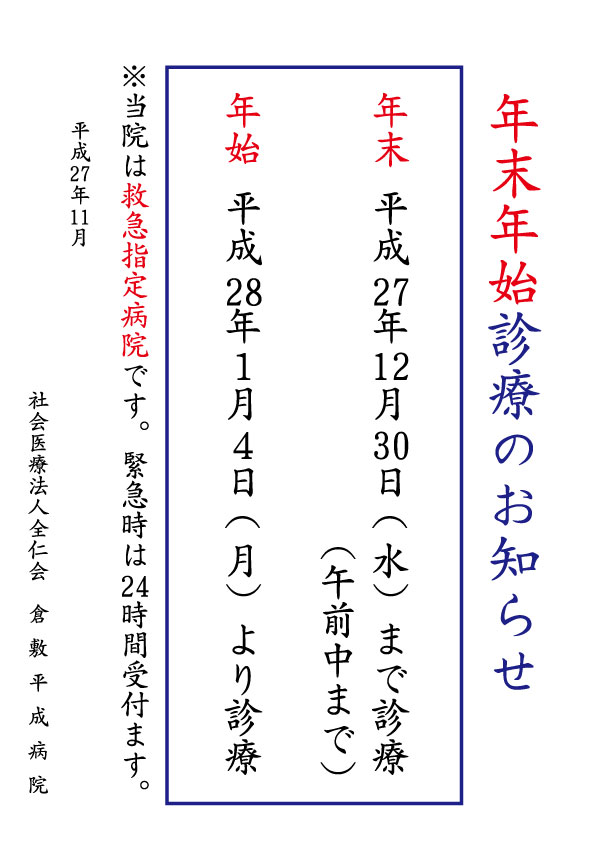 年末年始診療のお知らせ
年末 平成27年12月30日(水)まで診療
(午前中まで)
年始 平成28年1月4日(月)より診療
※当院は救急指定病院です。緊急時は24時間受付ます。
平成27年11月
社会医療法人全仁会 倉敷平成病院